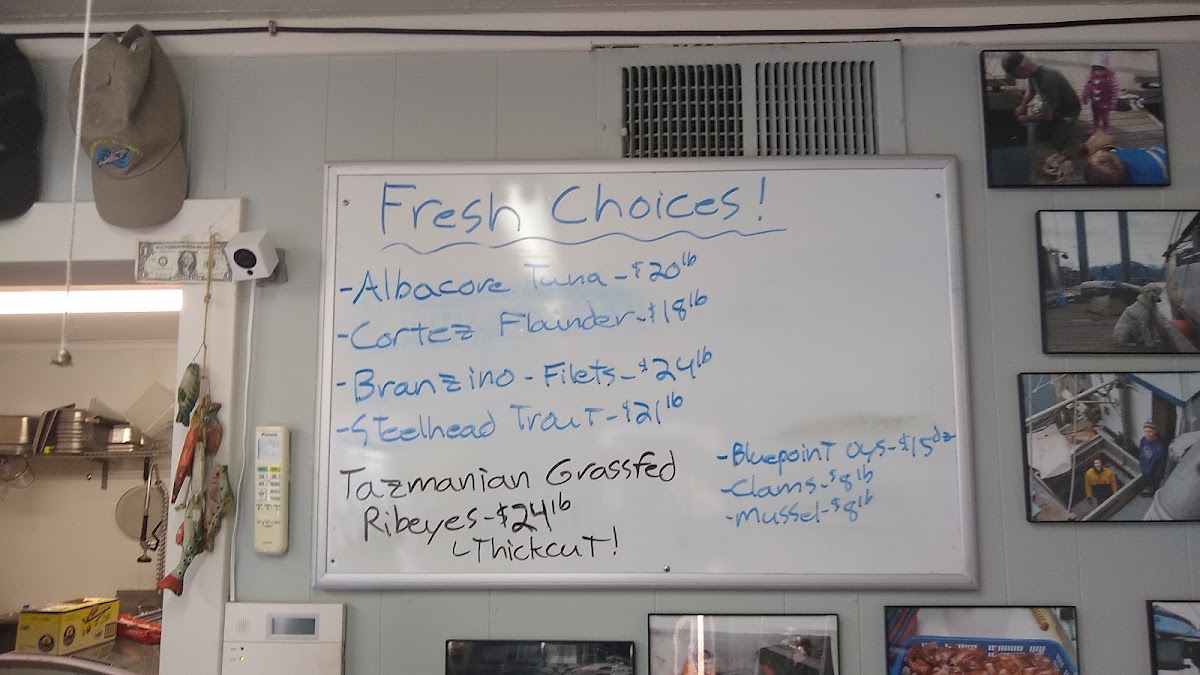 Fresh Choices!
-Albacore Tuna-$20lb
-Cortez Flounder-$18lb
-Branzino-Filets-$24lb
-Steelhead Trout-$21lb
Tazmanian Grassfed
Ribeyes-$24lb
Thickcut!
-Bluepoint Oys-$15dz
-Clams-$8lb
-Mussel-$8lb